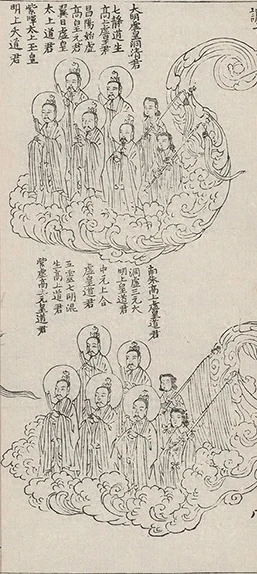 大明虛皇洞清君
七靜道生
高上虛皇君
昌陽始虛
高皇元君
翼日虛皇
太上道君
紫暉太上玉皇
明上大道君
南朱高上虛皇道君
洞虛三元太
明上皇道君
中元上合
虛皇道君
五靈七明混
生高上道君
紫虛高上元皇道君